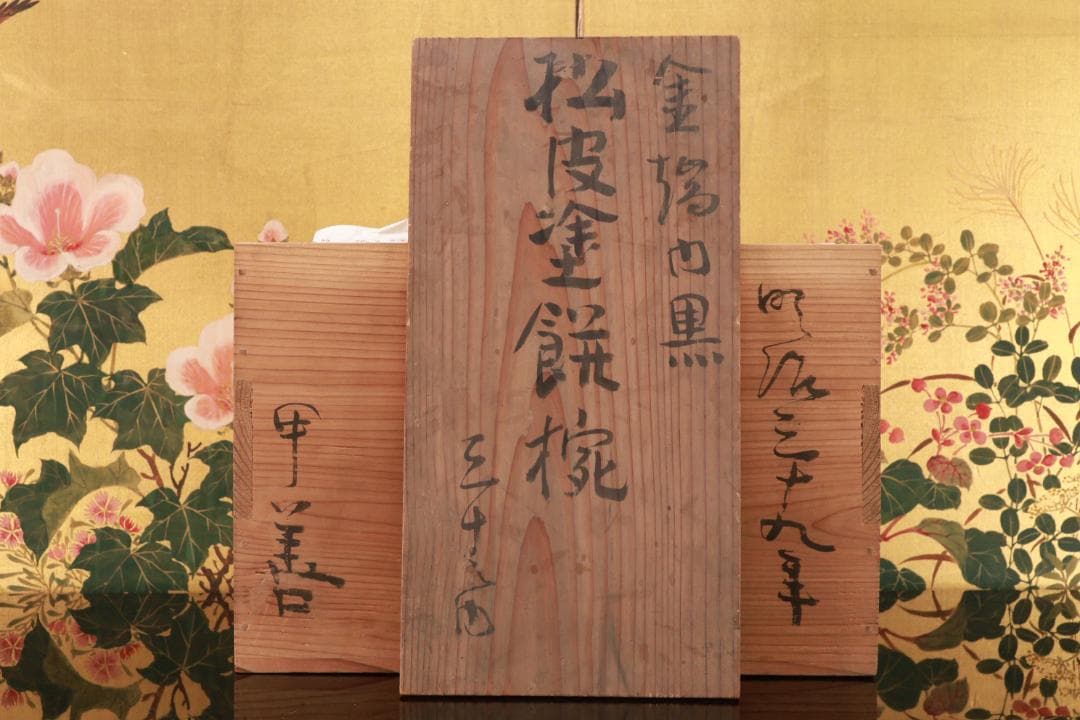 金端内黒
松皮塗餅椀
三十人内
明治三十九年
甲善